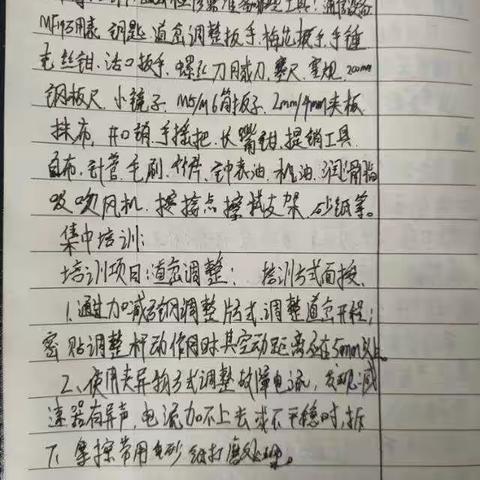 MF14万用表、钥匙、道岔调整扳手、梅花扳手、手锤
克丝钳、活口扳手、螺丝刀、塞尺、200mm
钢板尺、小镜子、M5/M6筒扳子、2mm/4mm夹板
抹布、开口销、手摇把、长嘴钳、提销工具
白布、针管、毛刷、竹片、钟表油、机油、润滑脂
吸吹风机、接点擦拭支架、砂纸等。
集中培训:
培训项目:道岔调整; 培训方式面授。
1.通过加减弧钢调整片式,调整道岔开程;
密贴调整杆动作用时,其空动距离应在5mm以上
2、使用表异频方式调整故障电流,发现:减
速器有异声,电流加不上去或不平稳时,拆
下摩擦带用砂纸打磨处理。